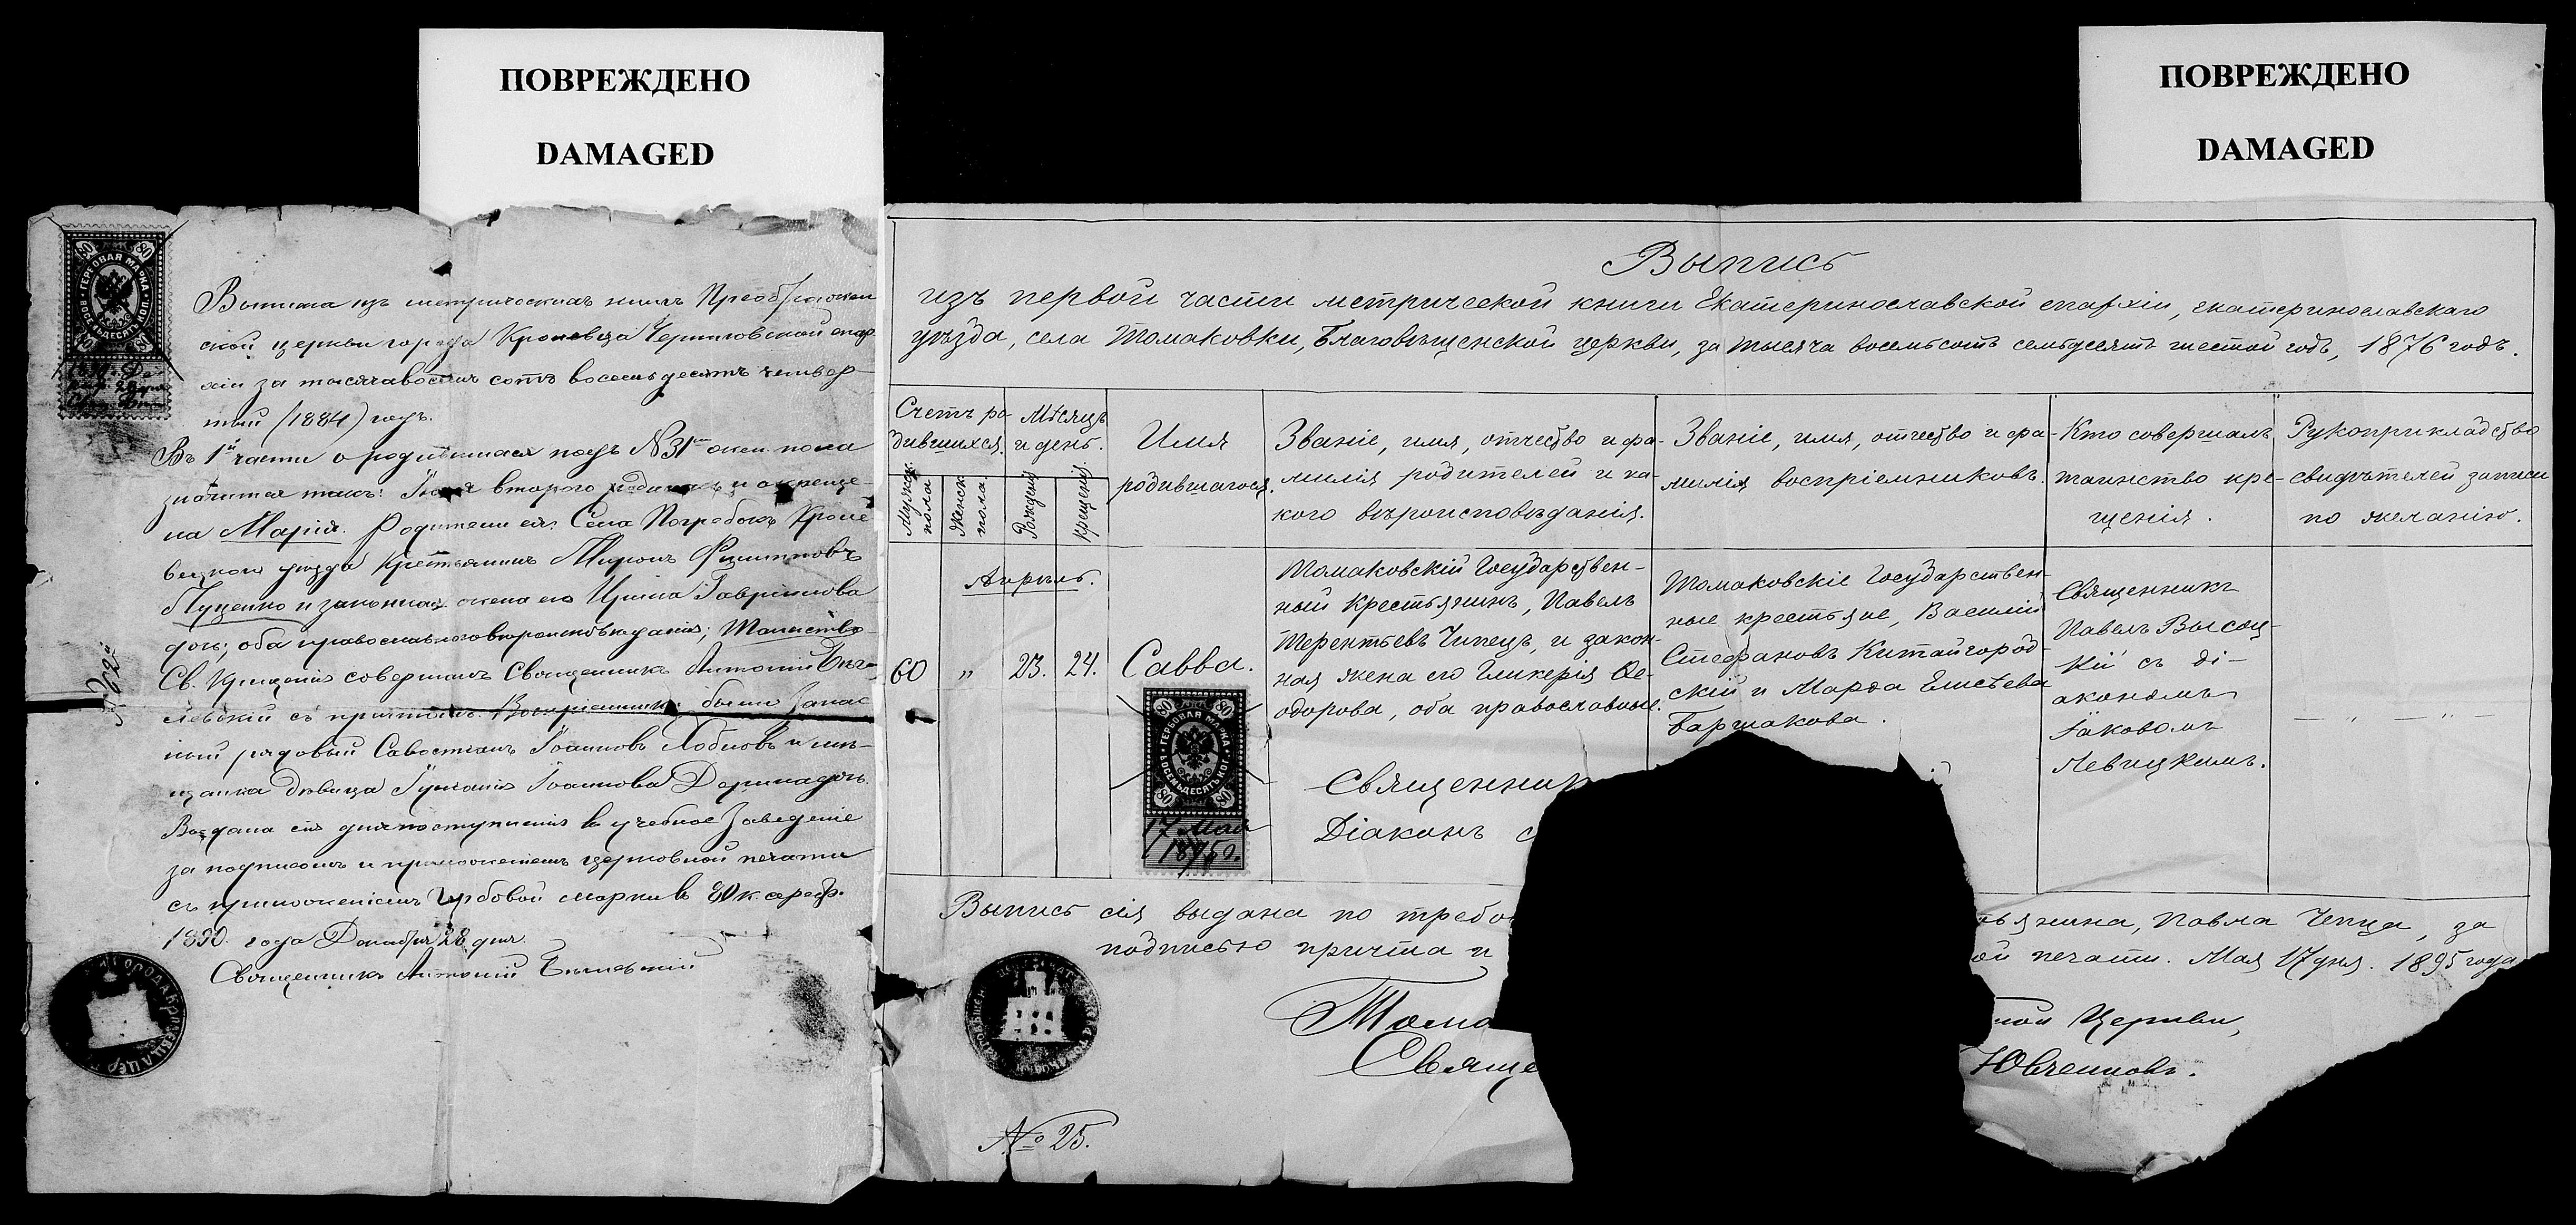 ПОВРЕЖДЕНО
DAMAGED
ПОВРЕЖДЕНО
DAMAGED
80 80
ГЕРБОВАЯ МАРКА
ВОСЕМЬДЕСЯТЪ КОП.
80 80
Выписка изъ метрическихъ книгъ Преображен
ской церкви города Кролевца Черниговской епар
хіи за тысяча восемь сотъ восемьдесятъ четвер
тый (1884) годъ.
Въ 1й части о родившихся подъ № 31 жен. пола
значится такъ: второго родилась и окреще
на Марія. Родители ея: Села Погребокъ Кроле
вецкаго уѣзда Крестьянинъ Миронъ Филипповъ
Луценко и законная жена его Ирина Гавриилова
дочь; оба православного вѣроисповѣданія; Таинство
Св. Крещенія совершилъ Священникъ Антоній Бѣль
левскій съ причтомъ. Воспріемники были Запас
ный рядовый Савостіанъ Іоанновъ Лобковъ и мѣ-
щанка дѣвица Іоаннова дочь.
Выдана сія для поступленія въ учебное Заведеніе
за подписомъ и приложеніемъ церковной печати
съ приложеніемъ Гербовой марки въ 80 к. сереб.
1890 года Декабря 28 дня.
Священникъ Антоній
Выпись
изъ первой части метрической книги Екатеринославской епархіи, екатеринославскаго
уѣзда, села Томаковки, Благовѣщенской церкви, за тысяча восемьсотъ семьдесятъ шестой годъ, 1876 годъ.
Счетъ ро-
дившихся.
Мужск. пола
Женск. пола
Мѣсяцъ
и день.
Рожденія
Крещенія
Имя
родившагося.
Званіе, имя, отчество и фа-
милія родителей и ка-
кого вѣроисповѣданія.
Званіе, имя, отчество и фа-
милія воспріемниковъ.
Кто совершалъ
таинство кре-
щенія.
Рукоприкладство
свидѣтелей записи
по желанію.
Апрѣль.
60 " 23. 24. Савва.
Томаковскій Государствен-
ный крестьянинъ, Павелъ
Терентьевъ Чипецъ, и закон-
ная жена его Гликерія Ѳе-
одорова, оба православные.
Томаковскіе Государствен-
ные крестьяне, Василій
Стефановъ Китайгород-
скій и Марѳа Елисѣева
Баршакова.
Священникъ
Павелъ Высоц-
кій съ ді-
акономъ
Іаковомъ
Левицкимъ.
— " — " —
80 80
ГЕРБОВАЯ МАРКА
ВОСЕМЬДЕСЯТЪ КОП.
80 80
17 Мая
1895 г.
Священник
Діаконъ
Выпись сія выдана по требо
ьянина, Павла Чепца, за
подписью причта и
ой печати. Мая 17 дня. 1895 года
Тома
ной Церкви,
Свяще
Ювченковъ.
№ 25.